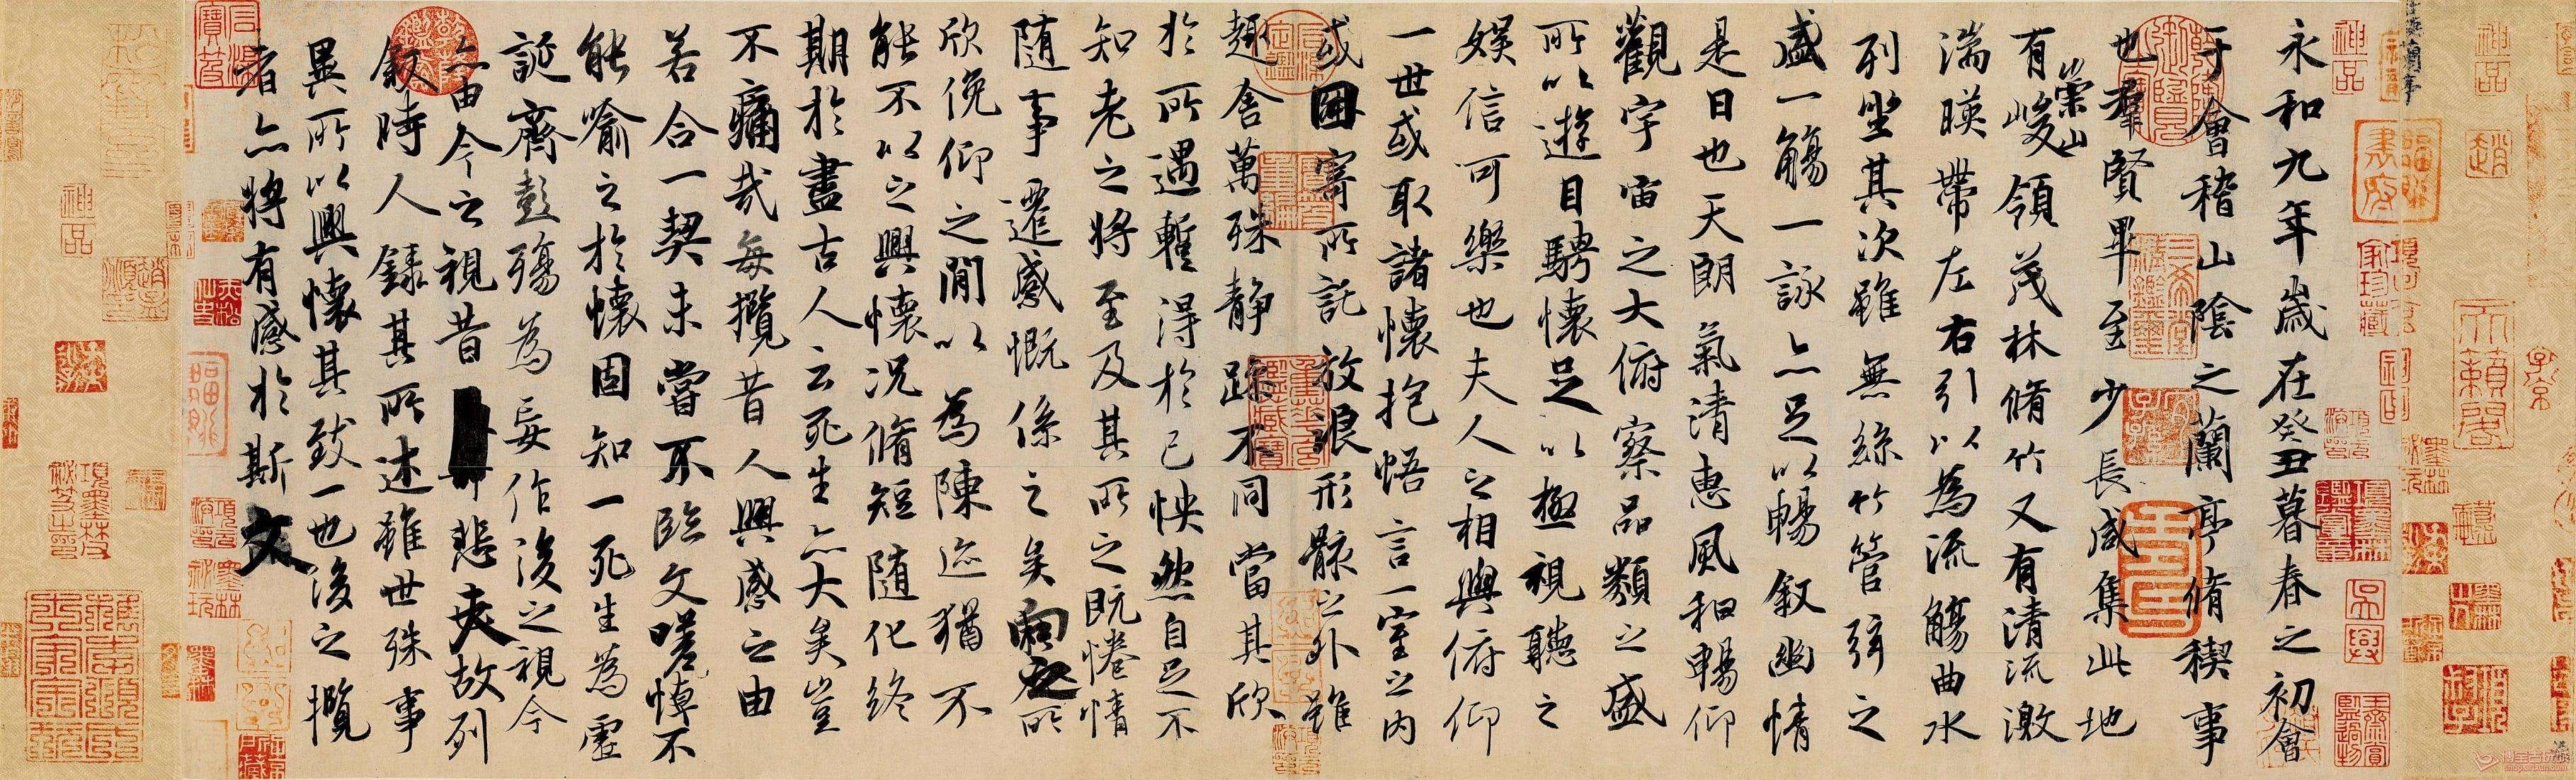 永和九年歲在癸丑暮春之初會
于會稽山陰之蘭亭脩稧事
也羣賢畢至少長咸集此地
有崇山峻領茂林脩竹又有清流激
湍暎帶左右引以為流觴曲水
列坐其次雖無絲竹管弦之
盛一觴一詠亦足以暢叙幽情
是日也天朗氣清惠風和暢仰
觀宇宙之大俯察品類之盛
所以遊目騁懷足以極視聽之
娛信可樂也夫人之相與俯仰
一世或取諸懷抱悟言一室之內
或因寄所託放浪形骸之外雖
趣舍萬殊静躁不同當其欣
於所遇蹔得於己怏然自足不
知老之將至及其所之既惓情
随事遷感慨係之矣向之所
欣俛仰之閒以為陳迹猶不
能不以之興懷況脩短随化終
期於盡古人云死生亦大矣豈
不痛哉每攬昔人興感之由
若合一契未嘗不臨文嗟悼不
能喻之於懷固知一死生為虛
誕齊彭殤為妄作後之視今
亦由今之視昔悲夫故列
叙時人錄其所述雖世殊事
異所以興懷其致一也後之攬
者亦將有感於斯文